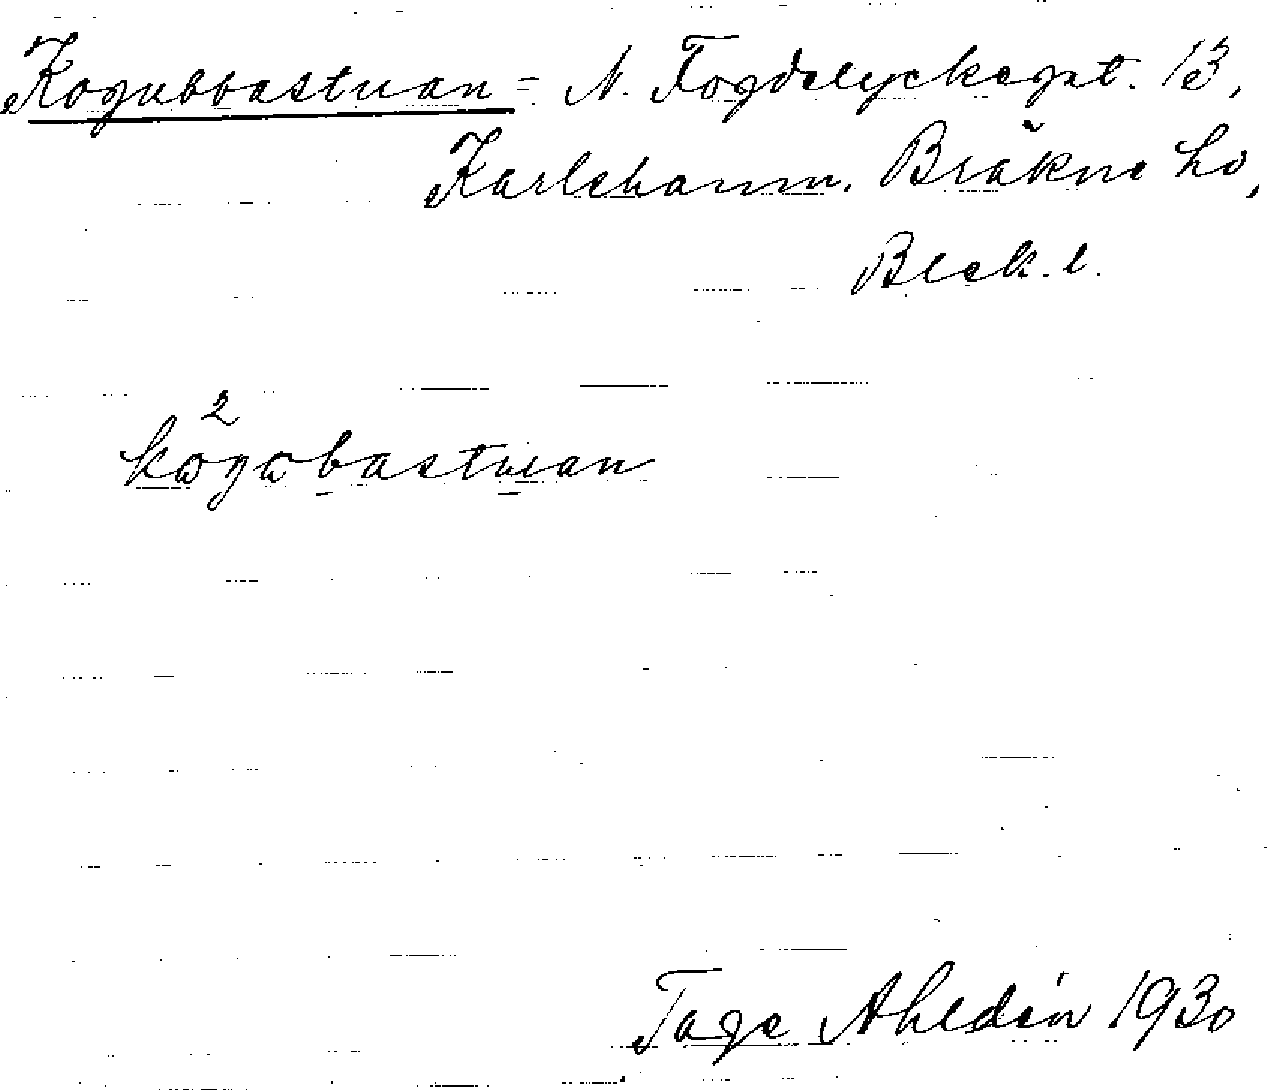 Kogubbastuan = N. Fogdelyckegat. 13,
Karlshamn. Bräkne hd,
Blek. l.
2
kogubastuan
Tage Ahldén 1930